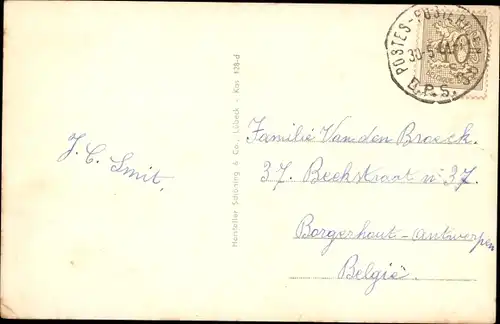 POSTES-POSTERIJEN
30-5
B.P.S.
40
J. C. Smit.
Hersteller Schöning & Co., Lübeck - Kas 128-d
Familie Van den Broeck.
37. Beekstraat nº 37.
Borgerhout-Antwerpen
België.